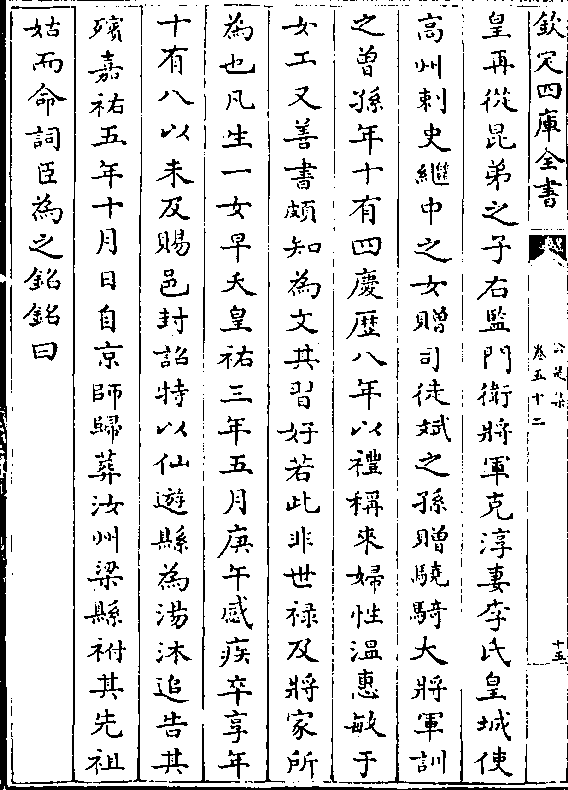 欽定四庫全書
公是集
卷五十二
十五
皇再從昆弟之子右監門衛將軍克淳妻李氏皇城使
高州刺史繼中之女贈司徒斌之孫贈驍騎大將軍訓
之曾孫年十有四慶歷八年以禮稱來婦性溫惠敏于
女工又善書頗知為文其習好若此非世禄及將家所
為也凡生一女早夭皇祐三年五月庚午感疾卒享年
十有八以未及賜邑封詔特以仙遊縣為湯沐追告其
殯嘉祐五年十月日自京師歸葬汝州梁縣祔其先祖
姑而命詞臣為之銘銘曰